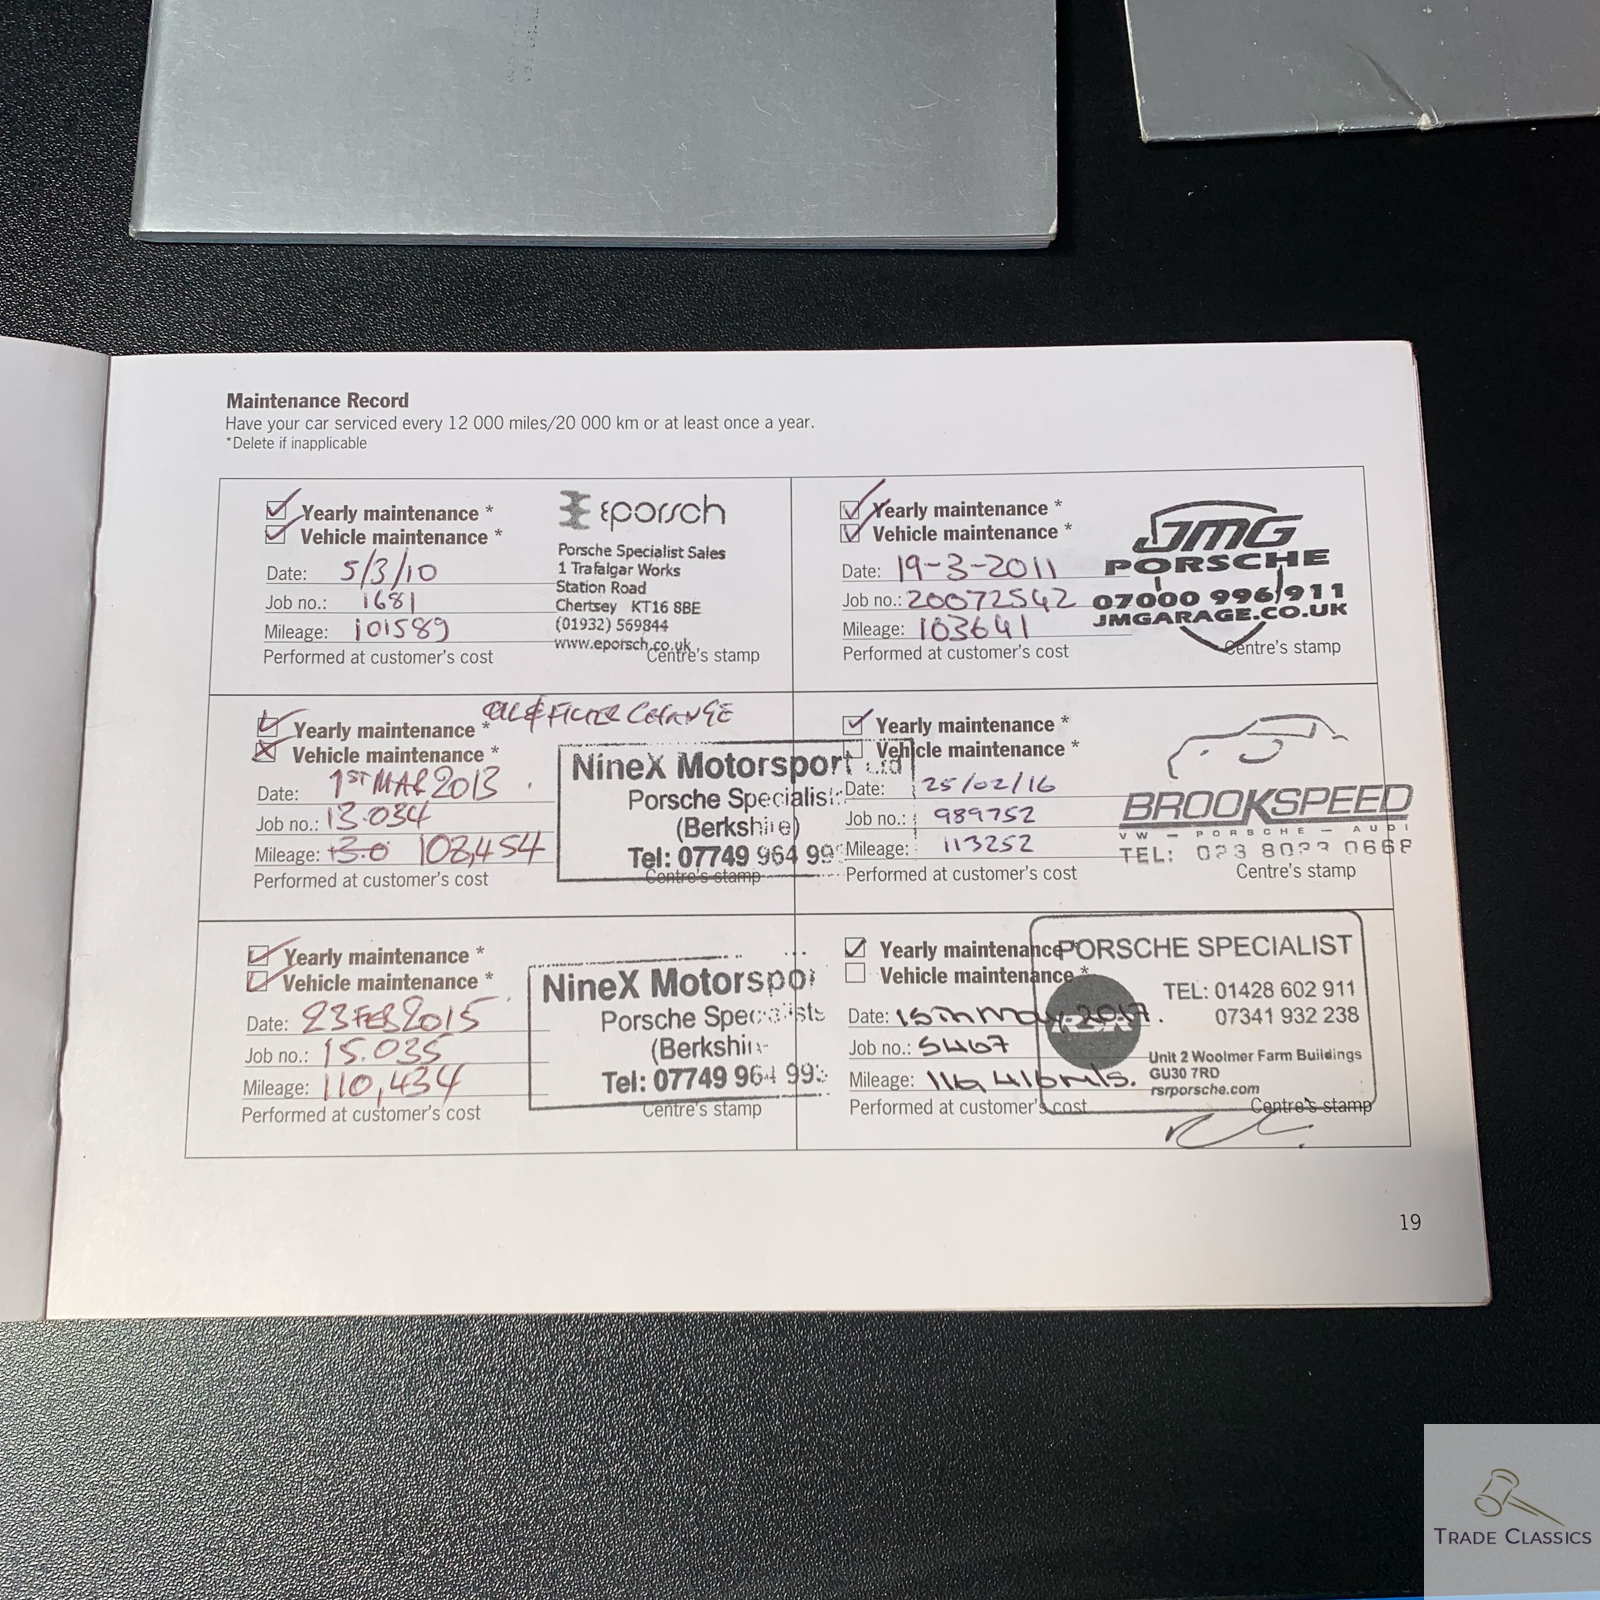 Maintenance Record
Have your car serviced every 12 000 miles/20 000 km or at least once a year.
*Delete if inapplicable
Yearly maintenance *
Vehicle maintenance *
Date: 5/3/10
Job no.: 1681
Mileage: 101589
Performed at customer's cost
eporsch
Porsche Specialist Sales
1 Trafalgar Works
Station Road
Chertsey KT16 8BE
(01932) 569844
www.eporsch.co.uk
Centre's stamp
Yearly maintenance *
Vehicle maintenance *
Date: 19-3-2011
Job no.: 20072542
Mileage: 103641
Performed at customer's cost
JMG
PORSCHE
07000 996 911
JMGARAGE.CO.UK
Centre's stamp
OIL & FILTER CHANGE
Yearly maintenance *
Vehicle maintenance *
Date: 1ST MAR 2013
Job no.: 13.034
Mileage: 108,454
Performed at customer's cost
NineX Motorsport Ltd
Porsche Specialist
(Berkshire)
Tel: 07749 964 99
Centre's stamp
Yearly maintenance *
Vehicle maintenance *
Date: 25/02/16
Job no.: 989752
Mileage: 113252
Performed at customer's cost
BROOKSPEED
VW – PORSCHE – AUDI
TEL: 023 80
Centre's stamp
Yearly maintenance *
Vehicle maintenance *
Date: 23 FEB 2015
Job no.: 15.035
Mileage: 110,434
Performed at customer's cost
NineX Motorspor
Porsche Specialists
(Berkshir
Tel: 07749 964 99
Centre's stamp
Yearly maintenance *
Vehicle maintenance *
Date: 15th May 2017.
Job no.: 5467
Mileage: 116,416 mls.
Performed at customer's cost
PORSCHE SPECIALIST
TEL: 01428 602 911
07341 932 238
Unit 2 Woolmer Farm Buildings
GU30 7RD
rsrporsche.com
Centre's stamp
19
TRADE CLASSICS